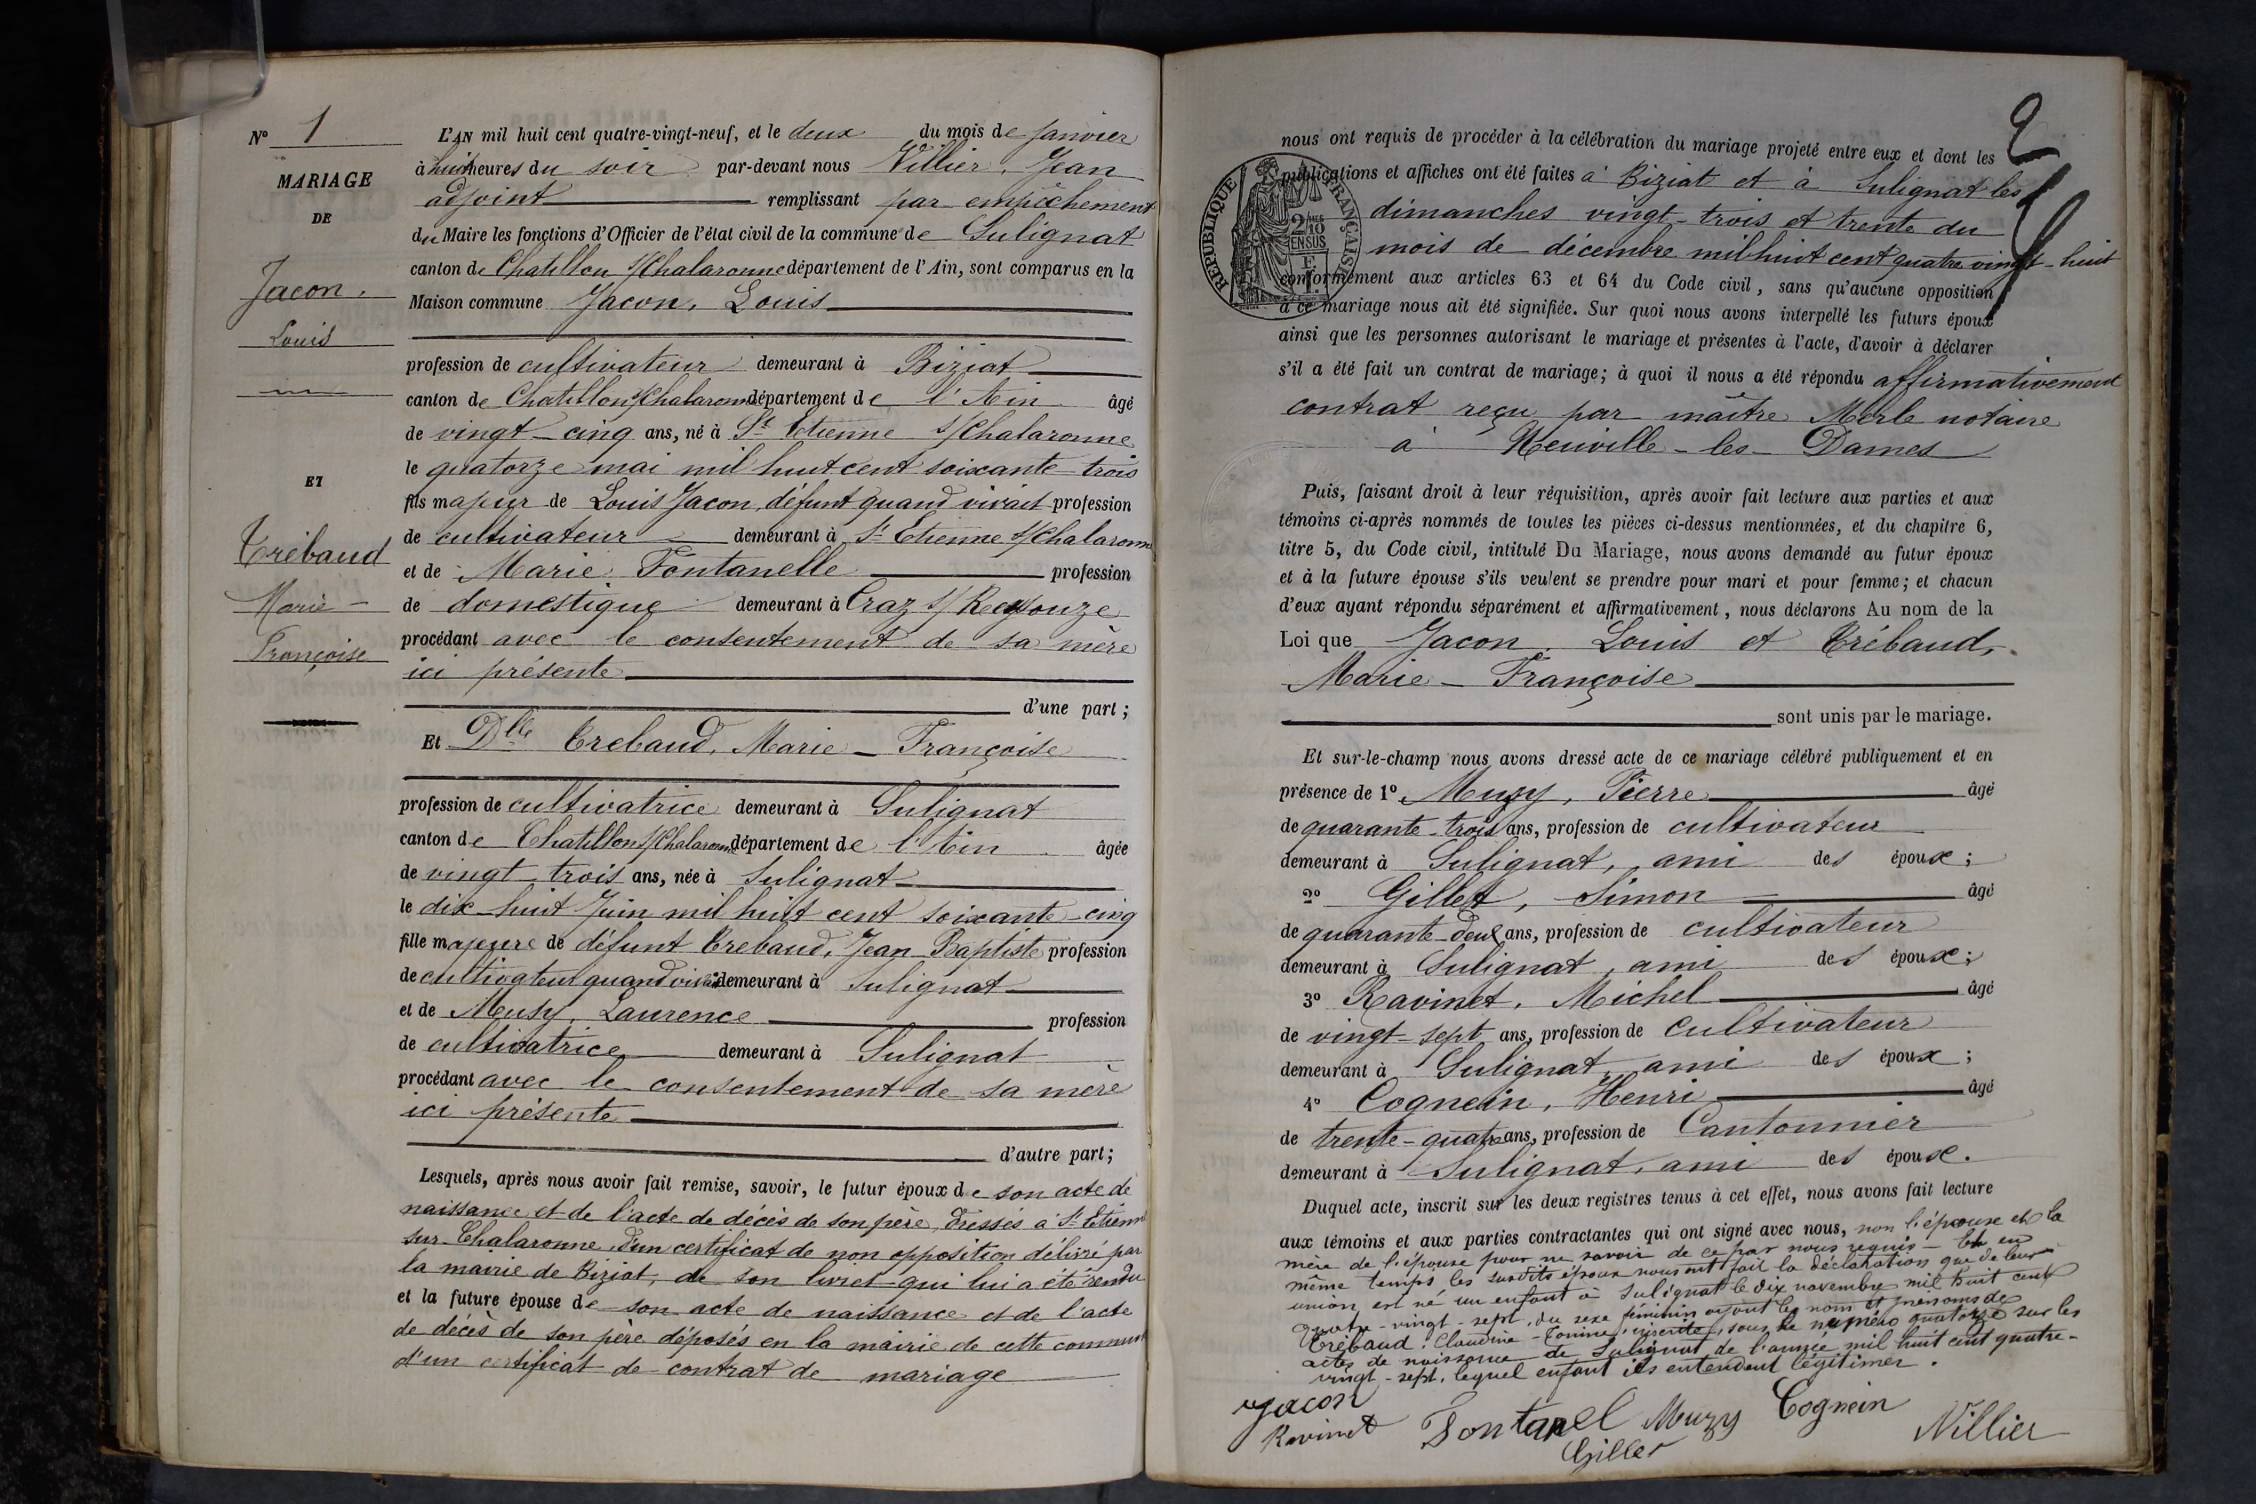 N° 1
MARIAGE
DE
Jacon.
Louis
ET
Trébaud
Marie-
Françoise
L'AN mil huit cent quatre-vingt-neuf, et le deux du mois de Janvier
à huit heures du soir par-devant nous Villier, Jean
adjoint remplissant par empêchement
du Maire les fonctions d'Officier de l'état civil de la commune de Sulignat
canton de Chatillon s/Chalaronne département de l'Ain, sont comparus en la
Maison commune Jacon, Louis
profession de cultivateur demeurant à Biziat
canton de Chatillon s/Chalaronne département de l'Ain âgé
de vingt-cinq ans, né à St Etienne s/Chalaronne
le quatorze mai mil huit cent soixante-trois
fils majeur de Louis Jacon, défunt quand vivait profession
de cultivateur demeurant à St Etienne s/Chalaronne
et de Marie Fontanelle profession
de domestique demeurant à Craz s/ Reyssouze
procédant avec le consentement de sa mère
ici présente
d'une part;
Et Dlle Trebaud, Marie-Françoise
profession de cultivatrice demeurant à Sulignat
canton de Chatillon s/Chalaronne département de l'Ain âgée
de vingt-trois ans, née à Sulignat
le dix-huit Juin mil huit cent soixante-cinq
fille majeure de défunt Trebaud, Jean-Baptiste profession
de cultivateur quand vivait demeurant à Sulignat
et de Musy, Laurence profession
de cultivatrice demeurant à Sulignat
procédant avec le consentement de sa mère
ici présente
d'autre part;
Lesquels, après nous avoir fait remise, savoir, le futur époux de son acte de
naissance et de l'acte de décès de son père, dressés à St Etienne
sur Chalaronne, d'un certificat de non opposition délivré par
la mairie de Biziat, de son livret qui lui a été rendu
et la future épouse de son acte de naissance et de l'acte
de décès de son père déposés en la mairie de cette commune
d'un certificat de contrat de mariage
2
nous ont requis de procéder à la célébration du mariage projeté entre eux et dont les
publications et affiches ont été faites à Biziat et à Sulignat les
dimanches vingt-trois et trente du
mois de décembre mil huit cent quatre vingt-huit
RÉPUBLIQUE FRANÇAISE
2/10
EN SUS
conformément aux articles 63 et 64 du Code civil, sans qu'aucune opposition
à ce mariage nous ait été signifiée. Sur quoi nous avons interpellé les futurs époux
ainsi que les personnes autorisant le mariage et présentes à l'acte, d'avoir à déclarer
s'il a été fait un contrat de mariage; à quoi il nous a été répondu affirmativement
contrat reçu par maître Merle notaire
à Neuville-les-Dames
Puis, faisant droit à leur réquisition, après avoir fait lecture aux parties et aux
témoins ci-après nommés de toutes les pièces ci-dessus mentionnées, et du chapitre 6,
titre 5, du Code civil, intitulé Du Mariage, nous avons demandé au futur époux
et à la future épouse s'ils veulent se prendre pour mari et pour femme; et chacun
d'eux ayant répondu séparément et affirmativement, nous déclarons Au nom de la
Loi que Jacon. Louis et Trébaud,
Marie-Françoise
sont unis par le mariage.
Et sur-le-champ nous avons dressé acte de ce mariage célébré publiquement et en
présence de 1° Muzy, Pierre âgé
de quarante-trois ans, profession de cultivateur
demeurant à Sulignat, ami des époux;
2° Gillet, Simon âgé
de quarante-deux ans, profession de cultivateur
demeurant à Sulignat, ami des époux;
3° Ravinet, Michel âgé
de vingt-sept ans, profession de cultivateur
demeurant à Sulignat, ami des époux;
4° Cognein, Henri âgé
de trente-quatre ans, profession de Cantonnier
demeurant à Sulignat, ami des époux.
Duquel acte, inscrit sur les deux registres tenus à cet effet, nous avons fait lecture
aux témoins et aux parties contractantes qui ont signé avec nous, non l'épouse et la
mère de l'épouse pour ne savoir de ce par nous requis - Et en
même temps les susdits époux nous ont fait la déclaration que de leur
union est né un enfant à Sulignat le dix novembre mil huit cent
quatre-vingt-sept, du sexe féminin ayant les nom et prénoms de
Trébaud Claudine-Tonine, inscrite, sous le numéro quatorze sur les
actes de naissance de Sulignat de l'année mil huit cent quatre-
vingt-sept, lequel enfant ils entendent légitimer.
Jacon
Ravinet
Fontanel
Muzy
Cognein
Gillet
Villier